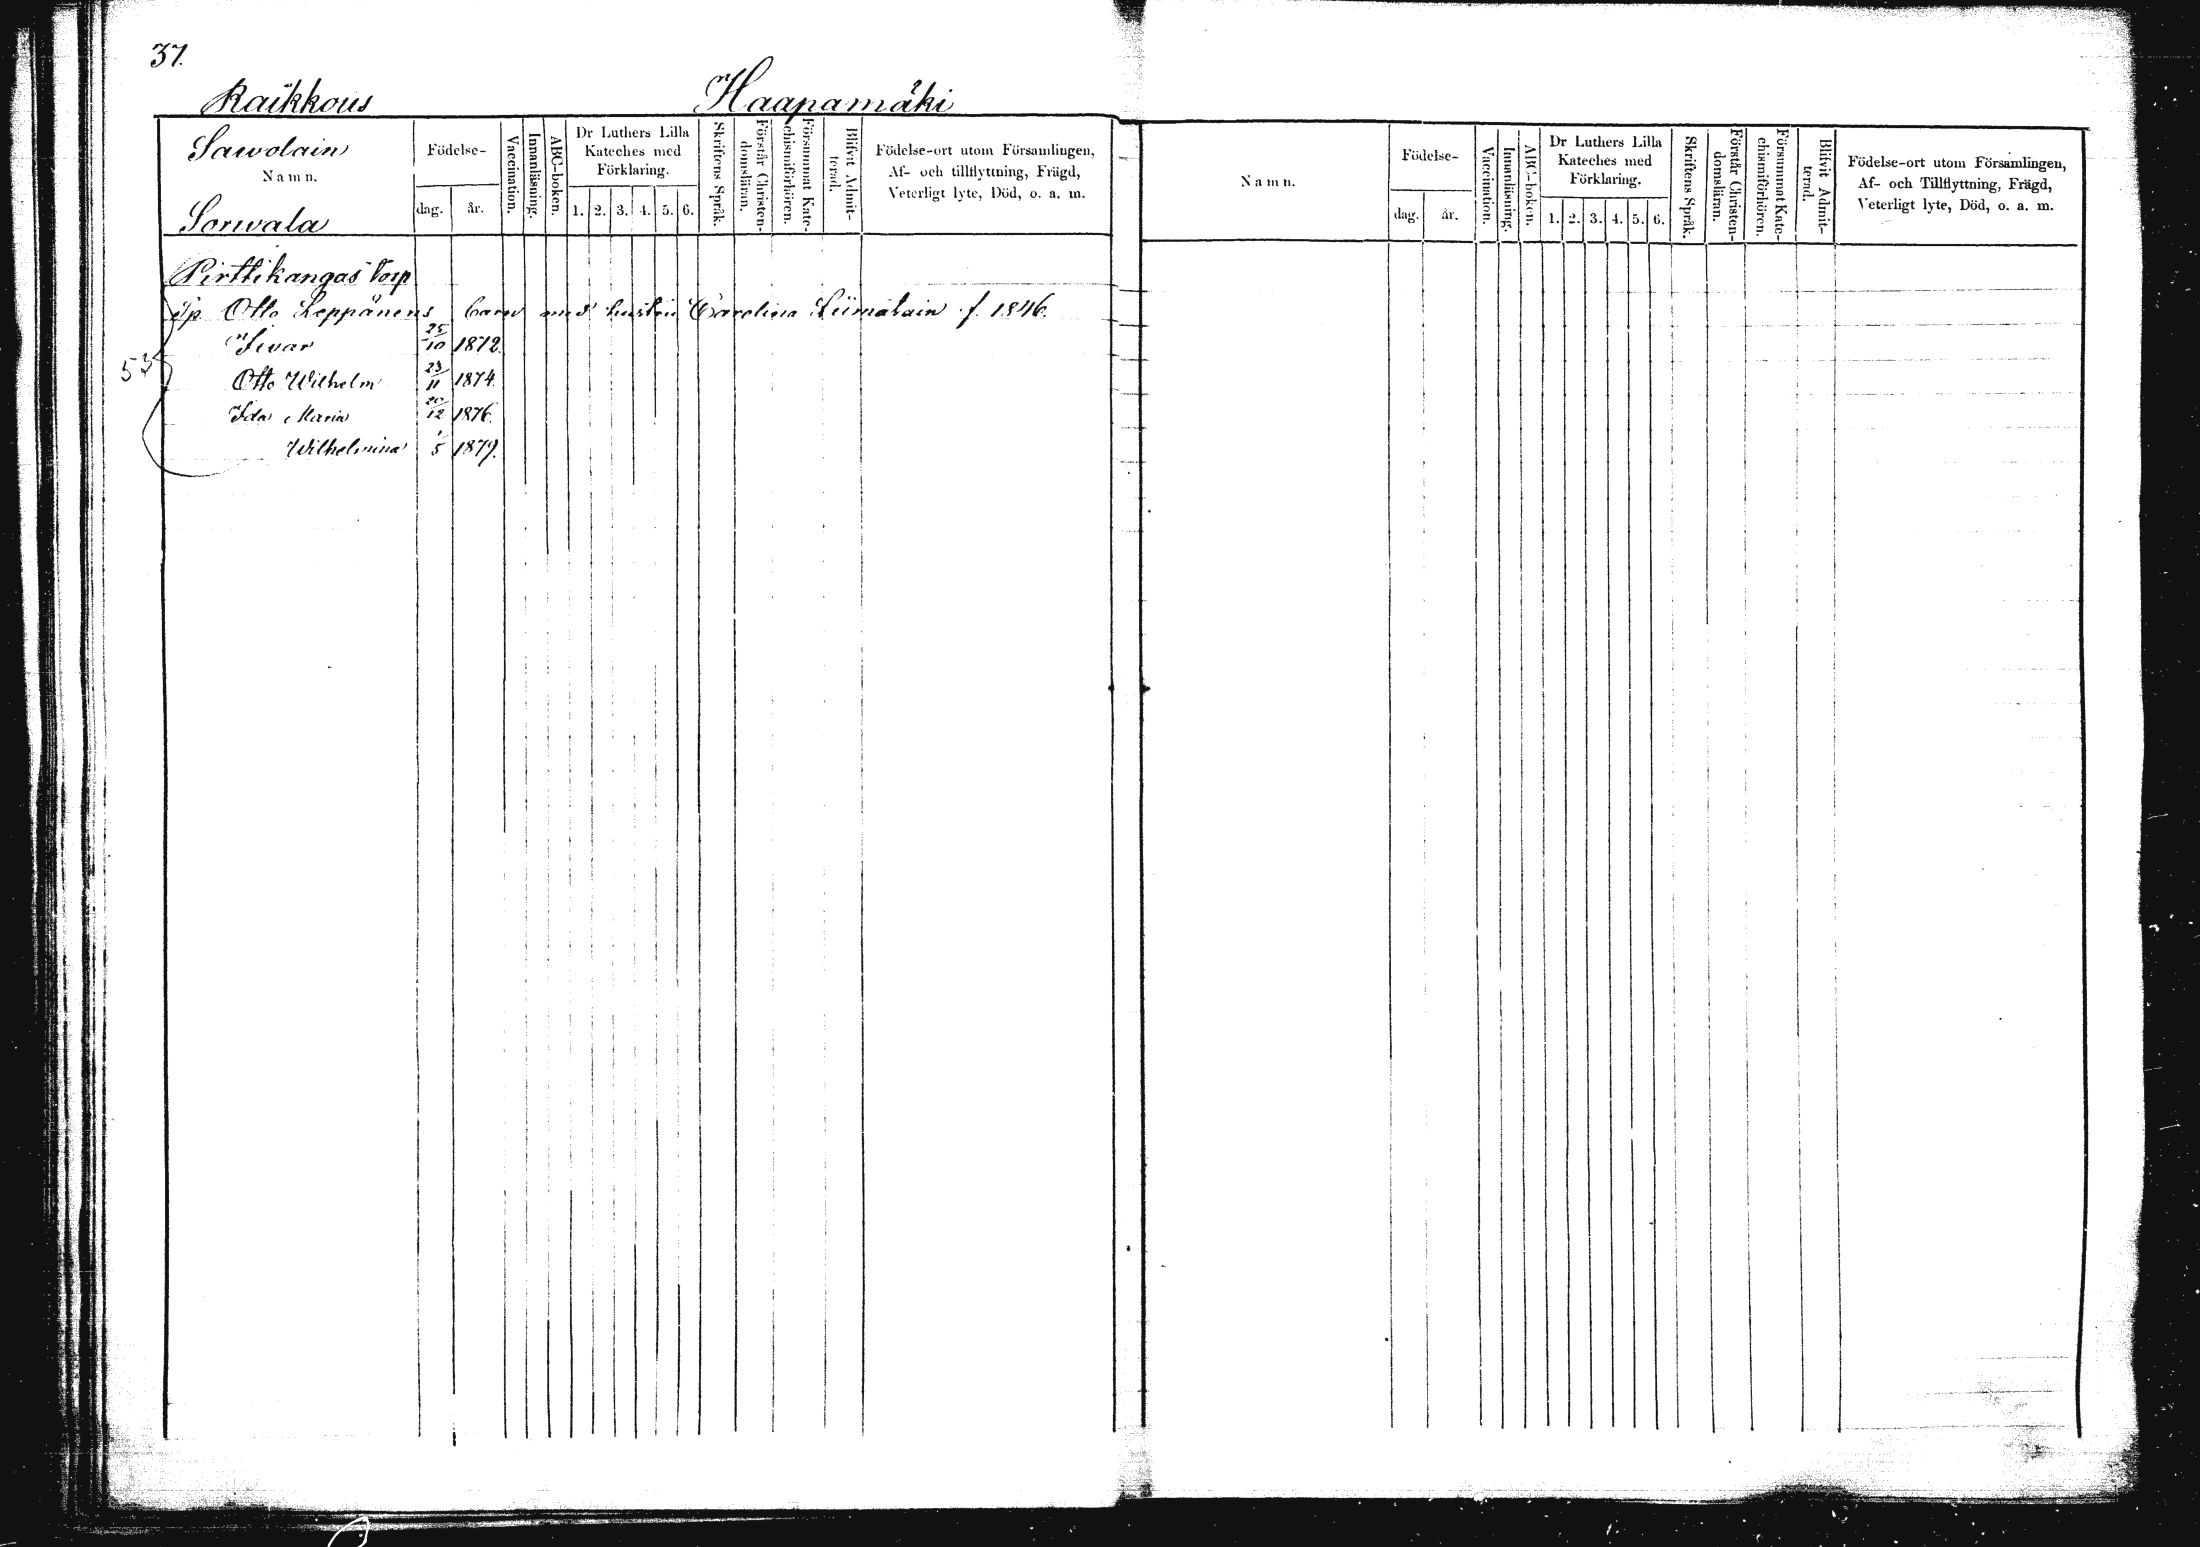 37.
Raikkous Haapamäki
Sawolain
Namn.
Sorwala
Födelse-
dag. år.
Vaccination.
Innanläsning.
ABC-boken.
Dr Luthers Lilla
Kateches med
Förklaring.
1. 2. 3. 4. 5. 6.
Skriftens Språk.
Förstår Christen-
domsläran.
Försummat Kate-
chismiförhören.
Blifvit Admit-
terad.
Födelse-ort utom Församlingen,
Af- och tillflyttning, Frägd,
Veterligt lyte, Död, o. a. m.
Pirttikangas torp
Otto Leppänens barn med hustru Carolina Liimatain f. 1846.
Ivar 25/10 1872.
53
Otto Wilhelm 23/11 1874.
Ida Maria 20/12 1876.
Wilhelmina 1/5 1879.
Namn.
Födelse-
dag. år.
Vaccination.
Innanläsning.
ABC-boken.
Dr Luthers Lilla
Kateches med
Förklaring.
1. 2. 3. 4. 5. 6.
Skriftens Språk.
Förstår Christen-
domsläran.
Försummat Kate-
chismiförhören.
Blifvit Admit-
terad.
Födelse-ort utom Församlingen,
Af- och Tillflyttning, Frägd,
Veterligt lyte, Död, o. a. m.